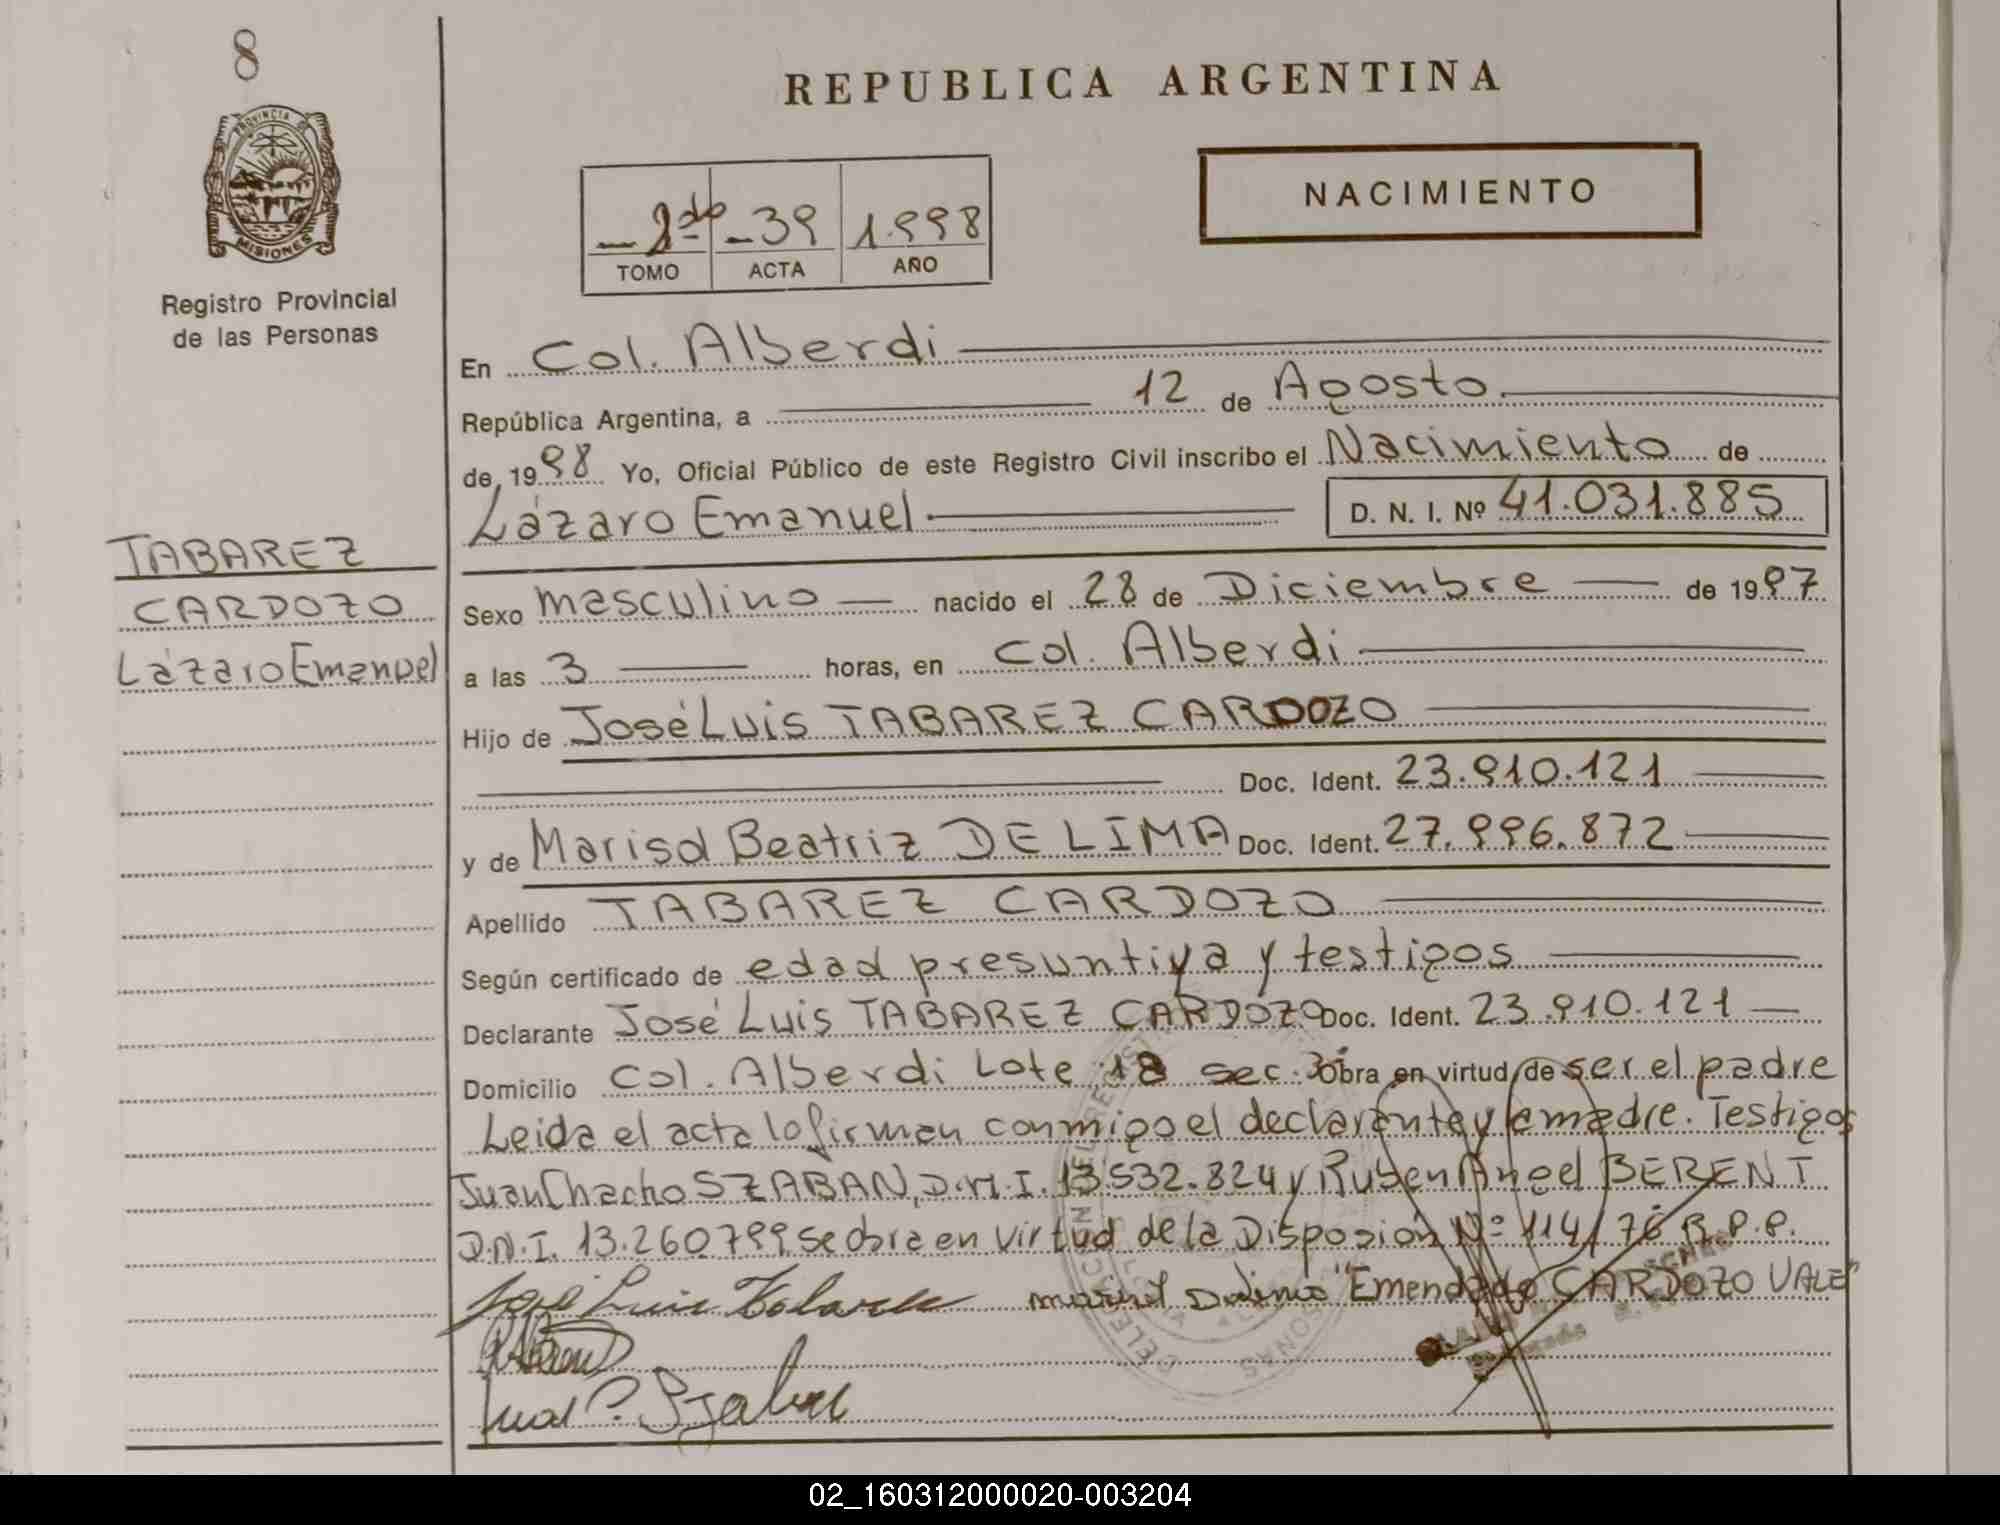 8
PROVINCIA DE
MISIONES
Registro Provincial
de las Personas
TABAREZ
CARDOZO
Lázaro Emanuel
REPUBLICA ARGENTINA
NACIMIENTO
2do 39 1.998
TOMO ACTA AÑO
En Col. Alberdi
República Argentina, a 12 de Agosto
de 1998 Yo, Oficial Público de este Registro Civil inscribo el Nacimiento de
Lázaro Emanuel D. N. I. Nº 41.031.885
Sexo masculino nacido el 28 de Diciembre de 1997
a las 3 horas, en Col. Alberdi
Hijo de José Luis TABAREZ CARDOZO
Doc. Ident. 23.910.121
y de Marisol Beatriz DE LIMA Doc. Ident. 27.996.872
Apellido TABAREZ CARDOZO
Según certificado de edad presuntiva y testigos
Declarante José Luis TABAREZ CARDOZO Doc. Ident. 23.910.121
Domicilio Col. Alberdi Lote 18 sec. 3º obra en virtud de ser el padre
Leida el acta lo firman conmigo el declarante y la madre. Testigos
Juan Chacho SZABAN, D.N.I. 13.532.824 y Ruben Angel BERENT
D.N.I. 13.260.799 se obra en virtud de la Disposión Nº 114/76 R.P.P.
José Luis "Emendado CARDOZO VALE"
Juan C.
02_160312000020-003204